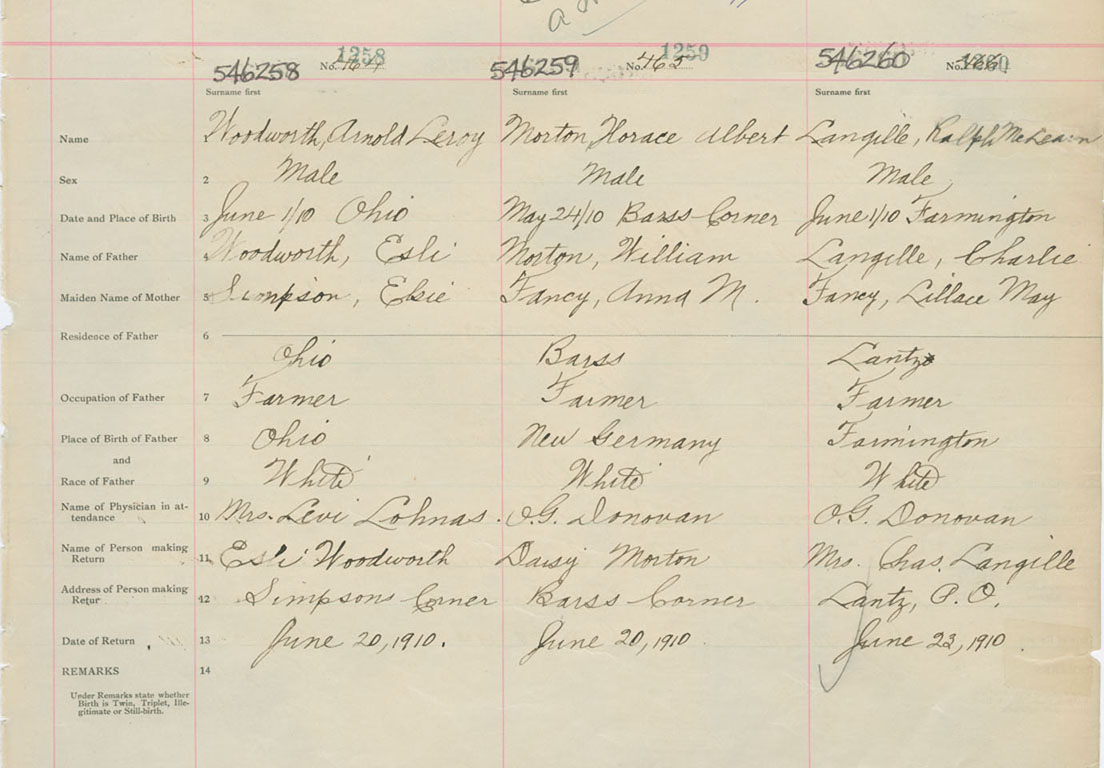 1258 1259 1260
546258 No. 546259 No. 465 546260 No.
Surname first Surname first Surname first
Name 1 Woodworth, Arnold Leroy Morton, Horace Albert Langille, Ralph McLearn
Sex 2 Male Male Male
Date and Place of Birth 3 June 1/10 Ohio May 24/10 Barss Corner June 1/10 Farmington
Name of Father 4 Woodworth, Esli Morton, William Langille, Charlie
Maiden Name of Mother 5 Simpson, Elsie Fancy, Anna M. Fancy, Lillace May
Residence of Father 6
Ohio Barss Lantz
Occupation of Father 7 Farmer Farmer Farmer
Place of Birth of Father 8 Ohio New Germany Farmington
and
Race of Father 9 White White White
Name of Physician in at-
tendance 10 Mrs. Levi Lohnas. O.G. Donovan O.G. Donovan
Name of Person making
Return 11 Esli Woodworth Daisy Morton Mrs. Chas. Langille
Address of Person making
Retur 12 Simpsons Corner Barss Corner Lantz, P.O.
Date of Return 13 June 20, 1910. June 20, 1910 June 23, 1910
REMARKS 14
Under Remarks state whether
Birth is Twin, Triplet, Ille-
gitimate or Still-birth.